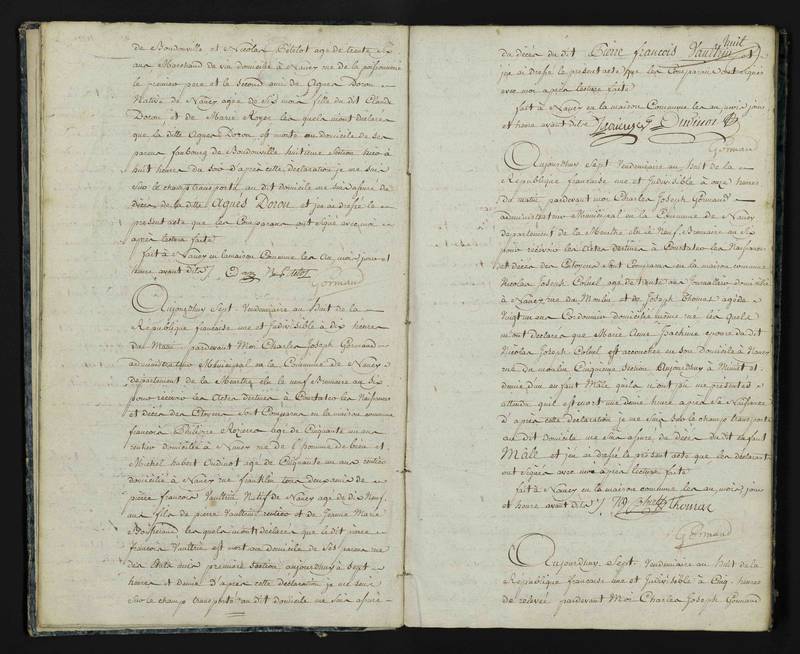 de Boudonville et Nicolas Petelot age de trente
ans Marchand de vin domicilié a Nancy rue de la poissonnerie
le premier pere et le second ami de Agnes Doron
Native de Nancy agee de six mois fille du dit Claude
Doron et de Marie Royer les quels mont declaré
que la ditte Agnes Doron est morte au domicile de ses
parens faubourg de Boudonville huitieme section hier à
huit heures du soir d'après cette déclaration je me suis
sur le champ transporté au dit domicile me suis assure du
décès de la ditte Agnes Doron et jen ai dressé le
present acte que les Comparans ont signé avec moi
après lecture faite
fait à Nancy en la maison Commune les an, mois, jours et
heure avant dits
Gormand
Aujourdhuy Sept Vendemiaire an huit de la
République française une et Indivisible à dix heures
du Matin pardevant Moi Charles Joseph Gormand
administrateur Municipal en la Commune de Nancy
departement de la Meurthe elu le neuf Brumaire an six
pour recevoir les Actes destinés à Constater les Naissances
et décès des Citoyens sont Comparus en la maison commune
francois Philippe age de Cinquante un ans
rentier domicilié à Nancy rue de l'homme de bien et
Michel hubert Oudinot agé de Cinquante un ans rentier
domicilié a Nancy rue franklin tous deux amis de
pierre francois Vaultrin Natif de Nancy age de dix Neuf
ans fils de pierre Vaultrin rentier et de Jeanne Marie
les quels mont déclaré que le dit pierre
francois Vaultrin est mort au domicile de ses parens rue
premiere section aujourdhuy à sept
heures et demie D'après cette déclaration je me suis
sur le champ transporté au dit domicile me suis assuré
du décès du dit Pierre francois Vaultrin et
jen ai dressé le present acte que les Comparans ont signés
avec moi après lecture faite
fait à Nancy en la maison Commune les an, mois, jours
et heure avant dits
Gormand
Aujourdhuy Sept Vendemiaire an huit de la
République française une et Indivisible à onze heures
du matin pardevant moi Charles Joseph Gormand
administrateur Municipal en la Commune de Nancy
departement de la Meurthe elu le Neuf Brumaire an Six
pour recevoir les Actes destinés à Constater les Naissances
et décès des Citoyens sont Comparus en la maison commune
Nicolas Joseph age de trente ans Journalier domicilié
à Nancy rue du Moulin et Joseph Thomas agé de
Vingt un ans Cordonnier domicilié même rue les quels
m'ont déclaré que Marie Anne Joachine epouse du dit
Nicolas Joseph est accouchée en son domicile à Nancy
rue du moulin Cinquieme section Aujourdhuy à Minuit et
demie d'un enfant Mâle quils n'ont pu me présenter
attendu quil est mort une demie heure après sa Naissance
d'après cette déclaration je me suis sur le champ transporté
au dit domicile me suis assuré du décès du dit Enfant
Mâle et jen ai dressé le présent acte que les déclarans
ont signés avec moi après lecture faite
fait à Nancy en la maison commune les an, mois, jours
et heure avant dits Thomas
Gormand
Aujourdhuy Sept Vendemiaire an huit de la
République française une et Indivisible à Cinq heures
de relevée pardevant Moi Charles Joseph Gormand